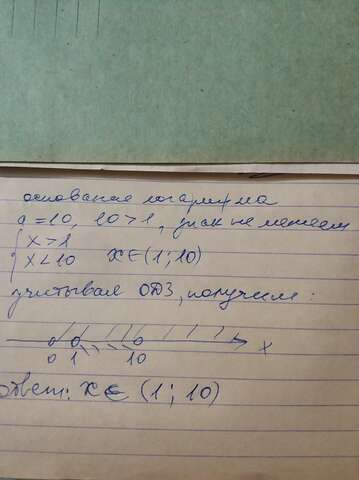 основание логарифма
a = 10, 10 > 1, знак не меняем
{ x > 1
{ x < 10 x ∈ (1; 10)
учитывая ОДЗ, получим:
0 1 10 x
ответ: x ∈ (1; 10)